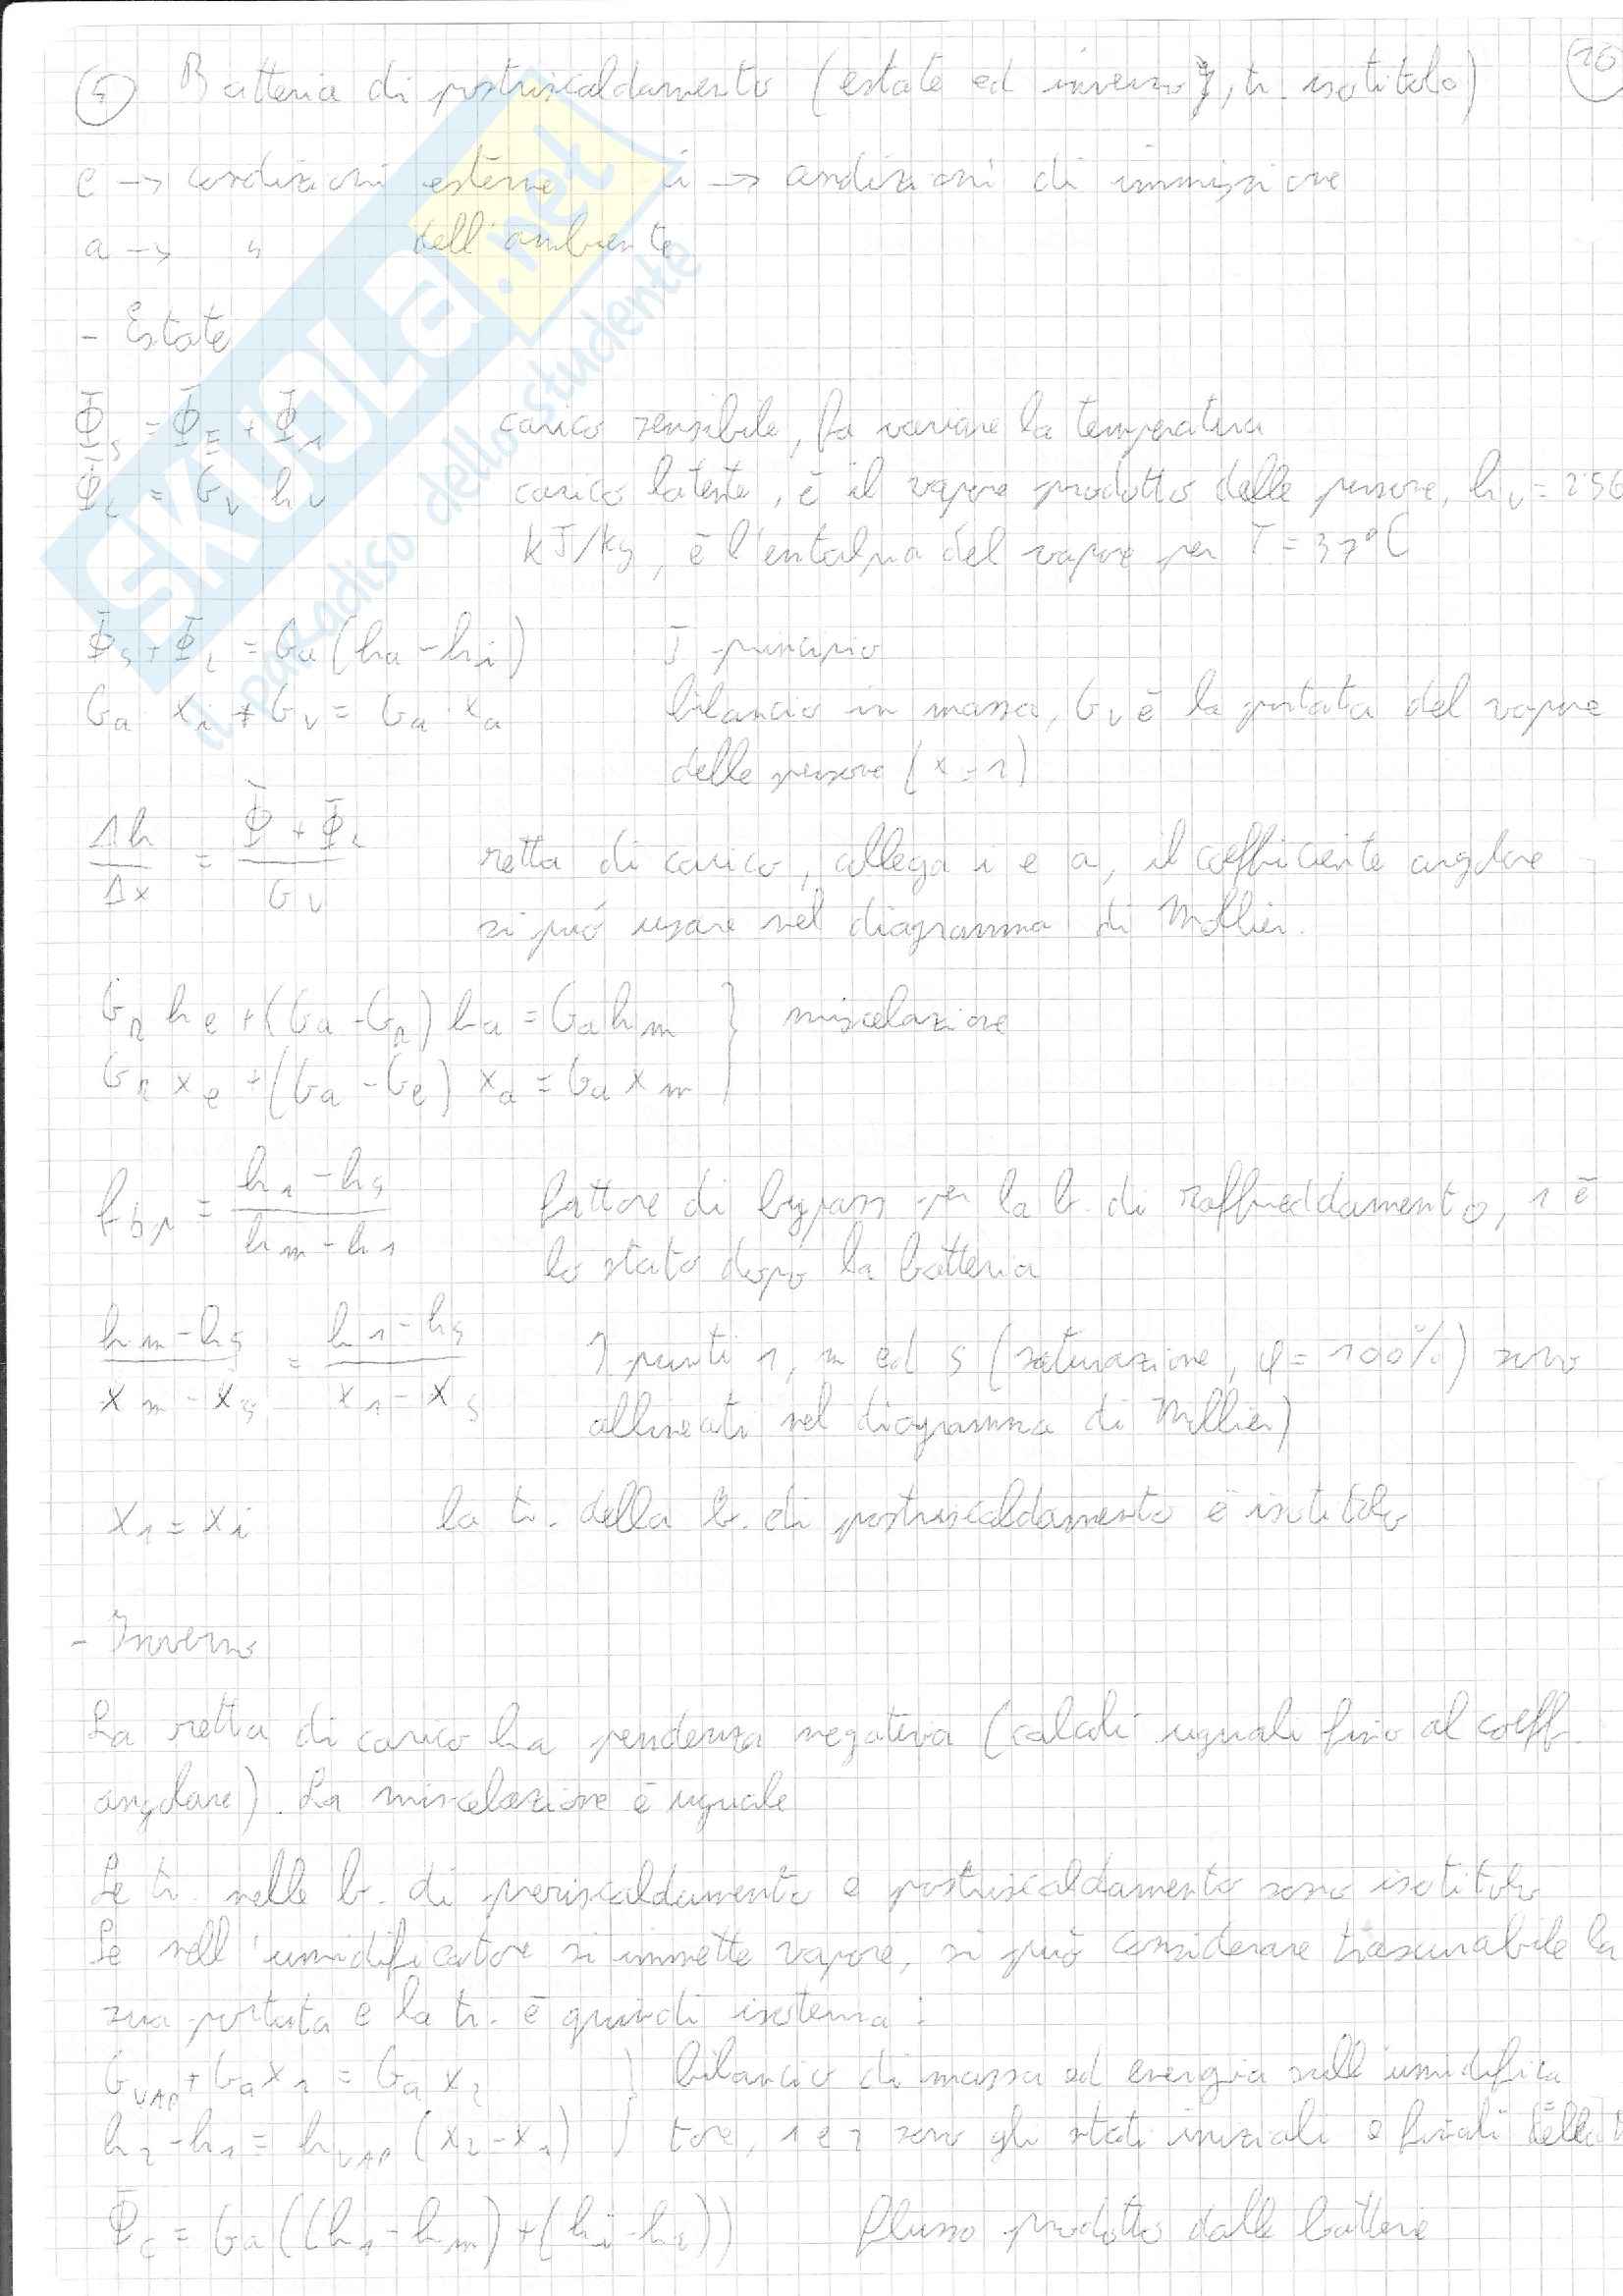 5 Batteria di postriscaldamento (estate ed inverno, tr. isotitolo)
e → condizioni esterne i → condizioni di immissione
a → " dell'ambiente
- Estate
Φ̄s = Φ̄E + Φ̄1 carico sensibile, fa variare la temperatura
Φ̄L = Gv hv carico latente, è il vapore prodotto dalle persone, hv = 256
kJ/kg, è l'entalpia del vapore per T = 37°C
Φ̄s + Φ̄L = Ga (ha - hi) I principio
Ga · xi + Gv = Ga · xa bilancio in massa, Gv è la portata del vapore
delle persone (x = 1)
Δh/Δx = (Φ̄ + Φ̄L)/Gv retta di carico, collega i e a, il coefficiente angolare
si può usare nel diagramma di Mollier.
GR he + (Ga - GR) ha = Ga hm } miscelazione
GR xe + (Ga - GR) xa = Ga xm
fbp = (h1 - hs)/(hm - h1) fattore di bypass per la b. di raffreddamento, 1 è
lo stato dopo la batteria
(hm - hs)/(xm - xs) = (h1 - hs)/(x1 - xs) I punti 1, m ed s (saturazione, φ = 100%) sono
allineati nel diagramma di Mollier)
x1 = xi la tr. della b. di postriscaldamento è isotitolo
- Inverno
La retta di carico ha pendenza negativa (calcoli uguali fino al coeff.
angolare). La miscelazione è uguale
Le tr. nelle b. di preriscaldamento e postriscaldamento sono isotitolo
Se nell'umidificatore si immette vapore, si può considerare trascurabile la
sua portata e la tr. è quindi isoterma:
GVAP + Ga x1 = Ga x2 } bilancio di massa ed energia sull'umidifica
h2 - h1 = hVAP (x2 - x1) tore, 1 e 2 sono gli stati iniziali e finali della
Φ̄c = Ga ((h1 - hm) + (hi - h2)) flusso prodotto dalle batterie
SKUOLA.net
il paradiso dello studente